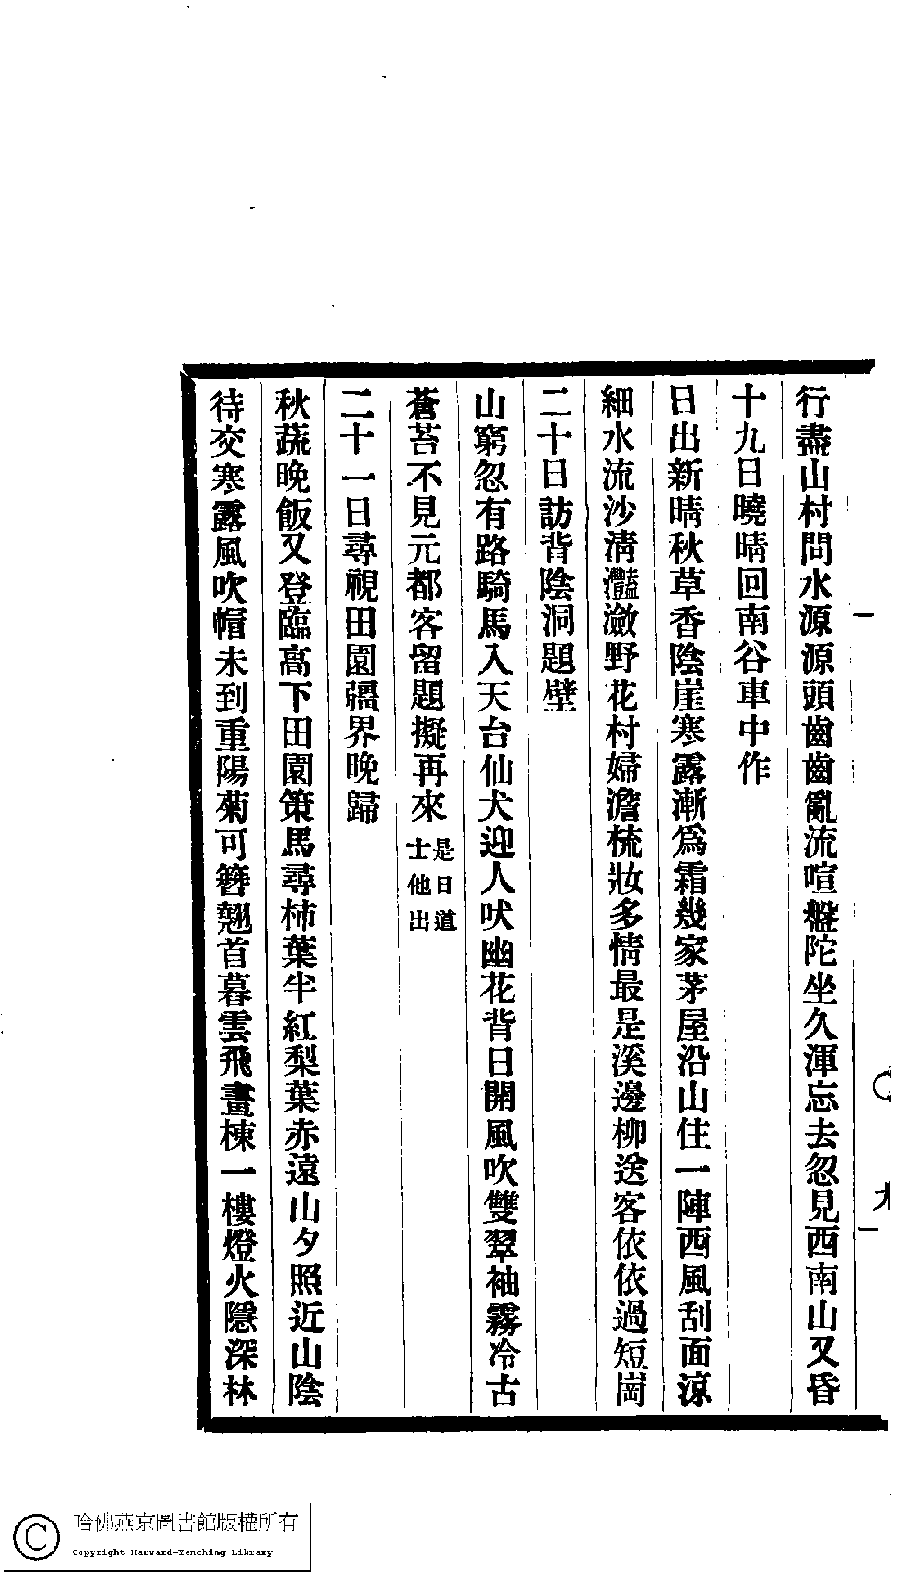 行盡山村問水源源頭齒齒亂流喧盤陀坐久渾忘去忽見西南山又昏
十九日曉晴回南谷車中作
日出新晴秋草香陰崖寒露漸爲霜幾家茅屋沿山住一陣西風刮面涼
細水流沙淸灩瀲野花村婦澹梳妝多情最是溪邊柳送客依依過短崗
二十日訪背陰洞題壁
山窮忽有路騎馬入天台仙犬迎人吠幽花背日開風吹雙翠袖霧冷古
蒼苔不見元都客留題擬再來是日道士他出
二十一日尋視田園疆界晚歸
秋蔬晚飯又登臨高下田園策馬尋柿葉半紅梨葉赤遠山夕照近山陰
待交寒露風吹帽未到重陽菊可簪翹首暮雲飛畫棟一樓燈火隱深林
九
哈佛燕京圖書館版權所有
Copyright Harvard-Yenching Library